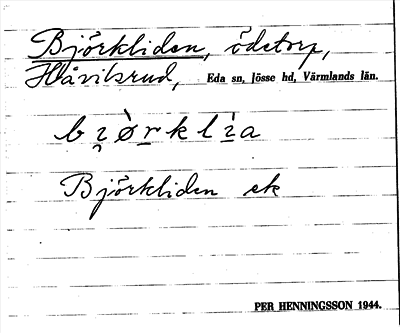 Björkliden, ödetorp,
Håvilsrud, Eda sn, Jösse hd, Värmlands län.
bi̯ø̀r̠klìa
Björkliden ek
PER HENNINGSSON 1944.